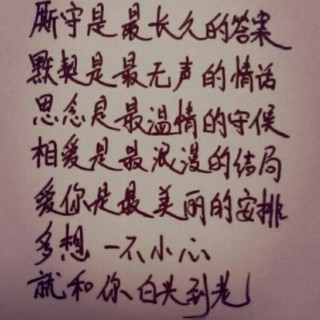 厮守是最长久的答案
默契是最无声的情话
思念是最温情的守候
相爱是最浪漫的结局
爱你是最美丽的安排
多想 一不小心
就和你白头到老